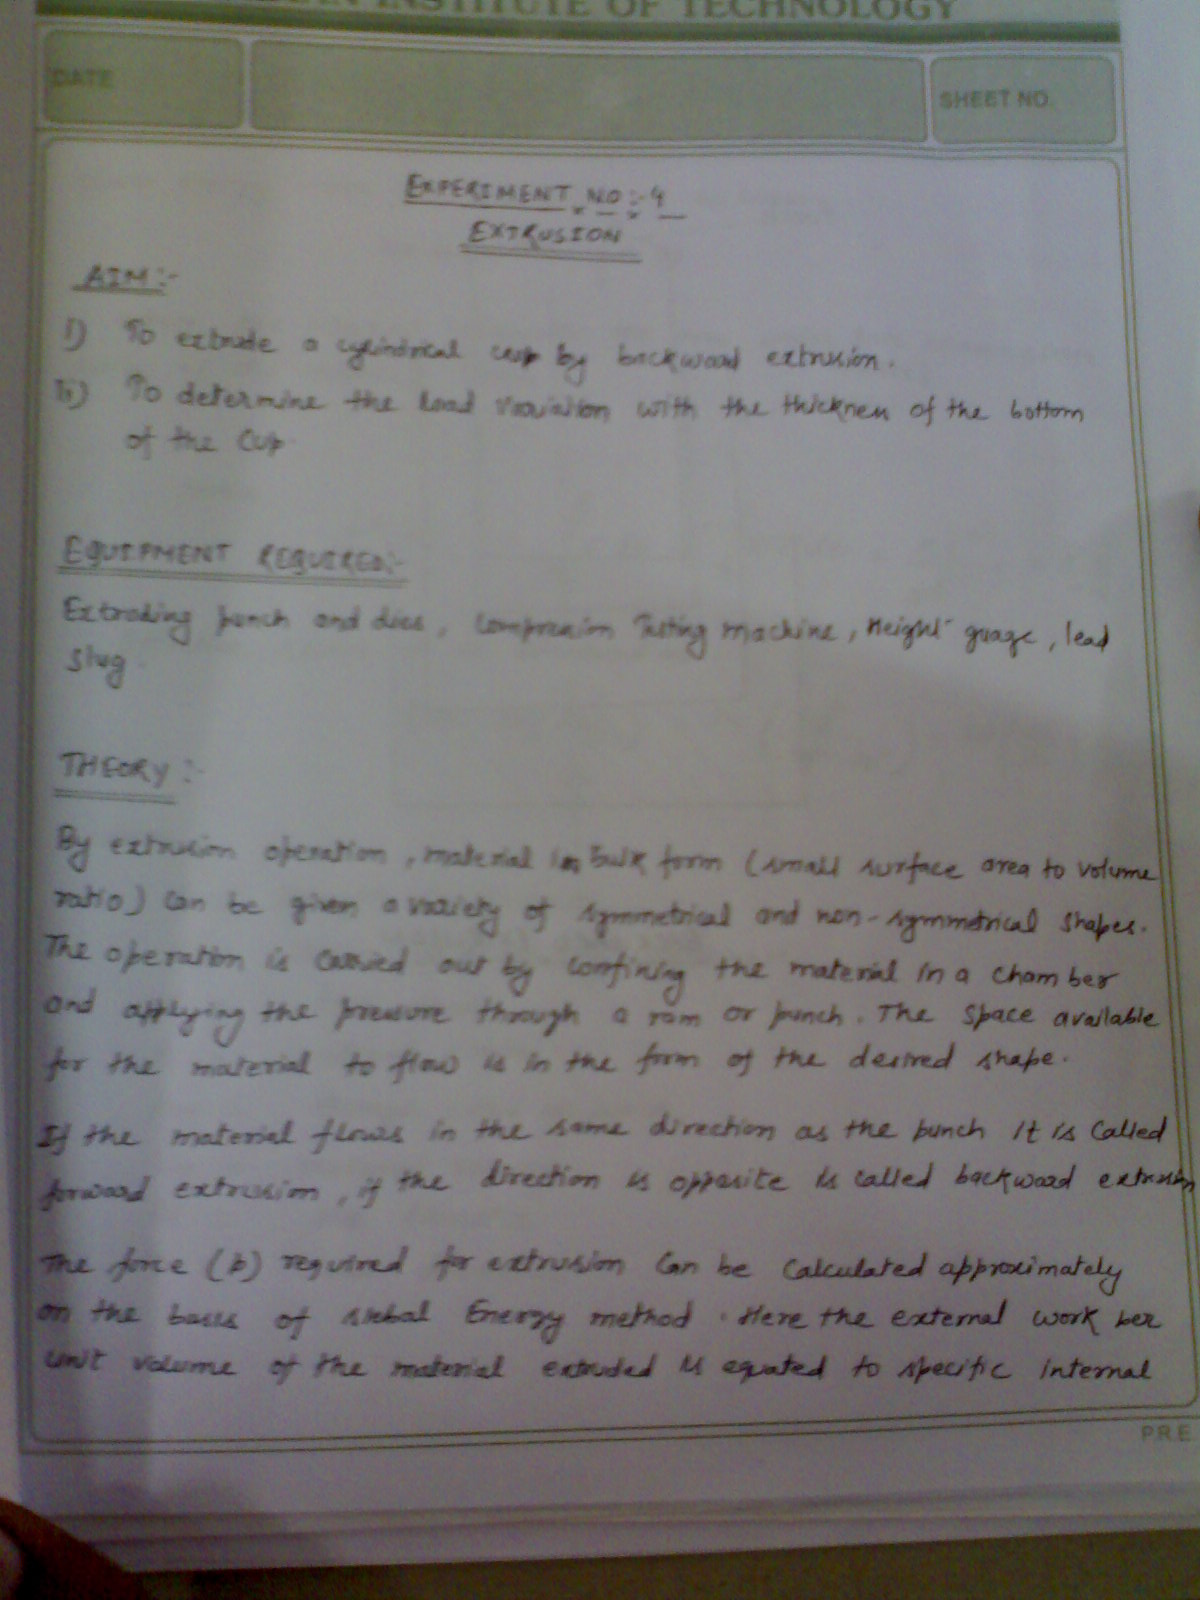 INSTITUTE OF TECHNOLOGY
DATE
SHEET NO.
EXPERIMENT NO:- 4
EXTRUSION
AIM:-
i) To extrude a cylindrical cup by backward extrusion.
ii) To determine the load variation with the thickness of the bottom
of the Cup
EQUIPMENT REQUIRED:-
Extruding punch and dies, Compression Testing machine, Height guage, lead
slug.
THEORY:-
By extrusion operation, material in Bulk form (small surface area to volume
ratio) can be given a variety of symmetrical and non-symmetrical shapes.
The operation is carried out by confining the material in a chamber
and applying the pressure through a ram or punch. The space available
for the material to flow is in the form of the desired shape.
If the material flows in the same direction as the punch it is called
forward extrusion, if the direction is opposite is called backward extrusion
The force (p) required for extrusion can be calculated approximately
on the basis of Energy method. Here the external work per
unit volume of the material extruded is equated to specific internal
PRE